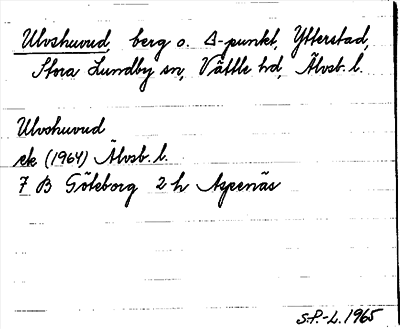 Ulvshuvud, berg o. Δ-punkt, Ytterstad,
Stora Lundby sn, Vättle hd, Älvsb. l.
Ulvshuvud
ek (1964) Älvsb. l.
7 B Göteborg 2 h Aspenäs
S.P.-L. 1965